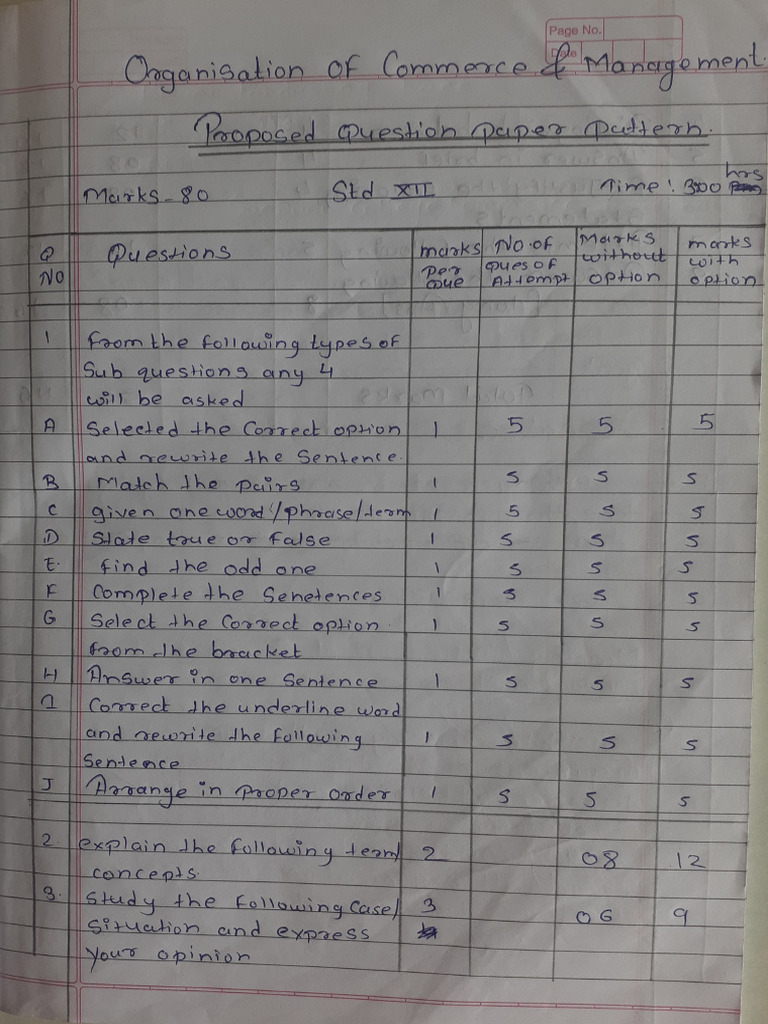 Page No.
Date
Organisation of Commerce & Management.
Proposed Question Paper Pattern.
Marks-80 Std XII Time: 3:00 hrs
Q NO Questions marks per que No. of ques of Attempt Marks without option marks with option
1 from the following types of
Sub questions any 4
will be asked
A Selected the Correct option 1 5 5 5
and rewrite the Sentence.
B Match the pairs 1 5 5 5
C given one word/phrase/term 1 5 5 5
D State true or false 1 5 5 5
E. find the odd one 1 5 5 5
F Complete the Senetences 1 5 5 5
G Select the Correct option 1 5 5 5
from the bracket
H Answer in one Sentence 1 5 5 5
I Correct the underline word
and rewrite the following 1 5 5 5
Sentence
J Arrange in proper order 1 5 5 5
2. explain the following term/ 2 08 12
concepts.
3. Study the following Case/ 3 06 9
Situation and express
your opinion